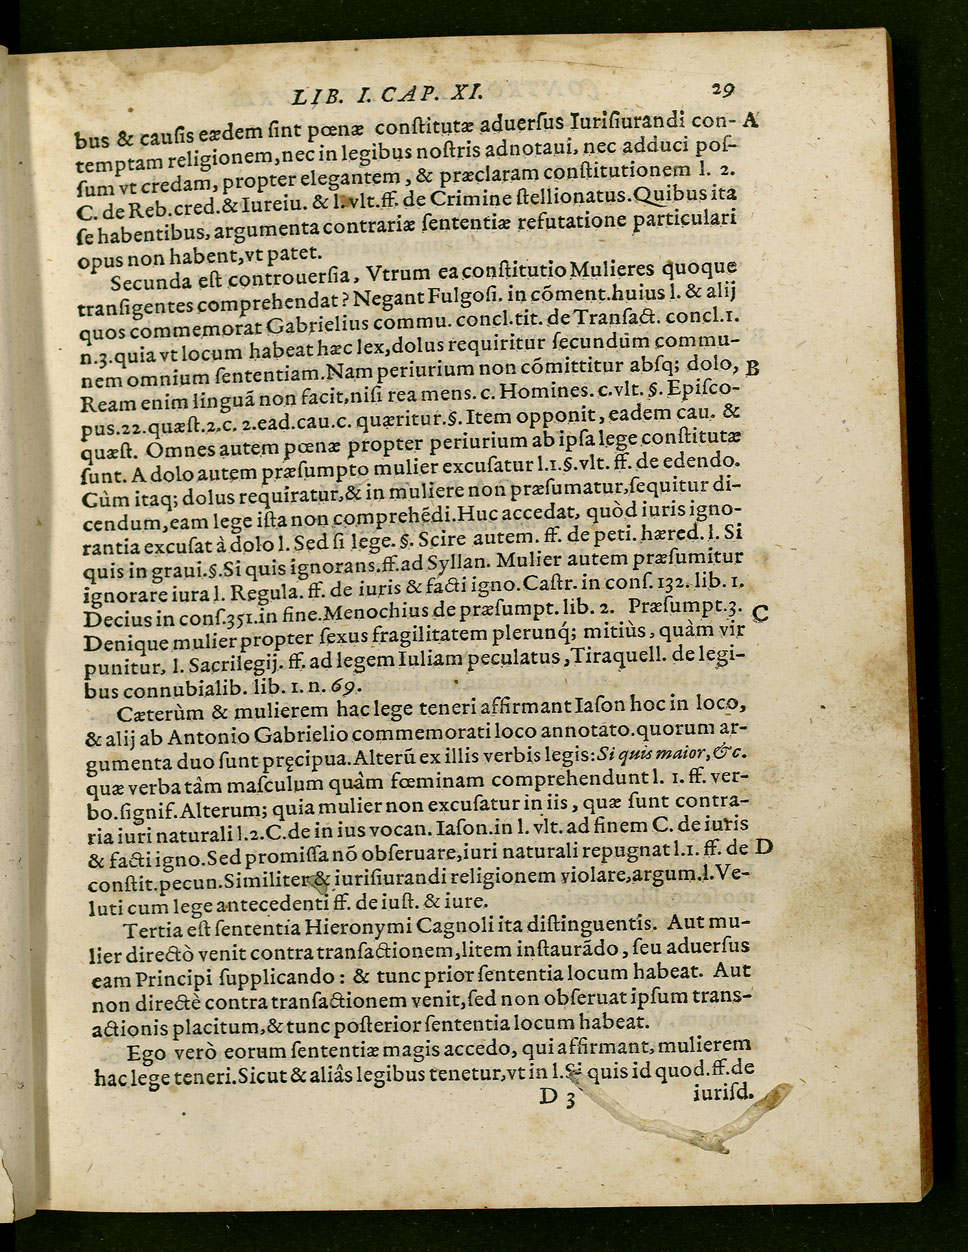 LIB. I. CAP. XI. 29
bus & cauſis eædem ſint pœnæ conſtitutæ aduerſus Iuriſiurandi con- A
temptam religionem, nec in legibus noſtris adnotaui, nec adduci poſ-
ſum vt credam, propter elegantem, & præclaram conſtitutionem l. 2.
C. de Reb. cred. & Iureiu. & l. vlt. ff. de Crimine ſtellionatus. Quibus ita
ſe habentibus, argumenta contrariæ ſententiæ refutatione particulari
opus non habent, vt patet.
Secunda eſt controuerſia, Vtrum ea conſtitutio Mulieres quoque
tranſigentes comprehendat? Negant Fulgoſi. in cõment. huius l. & alij
quos commemorat Gabrielius commu. concl. tit. de Tranſact. concl. 1.
n. 3. quia vt locum habeat hæc lex, dolus requiritur ſecundum commu-
nem omnium ſententiam. Nam periurium non cõmittitur abſq; dolo, B
Ream enim linguã non facit, niſi rea mens. c. Homines. c. vlt. §. Epiſco-
pus. 22. quæſt. 2. c. 2. ead. cau. c. quæritur. §. Item opponit, eadem cau. &
quæſt. Omnes autem pœnæ propter periurium ab ipſa lege conſtitutæ
ſunt. A dolo autem præſumpto mulier excuſatur l. 1. §. vlt. ff. de edendo.
Cùm itaq; dolus requiratur, & in muliere non præſumatur, ſequitur di-
cendum, eam lege iſta non comprehẽdi. Huc accedat, quòd iuris igno-
rantia excuſat à dolo l. Sed ſi lege. §. Scire autem. ff. de peti. hæred. l. Si
quis in graui. §. Si quis ignorans. ff. ad Syllan. Mulier autem præſumitur
ignorare iura l. Regula. ff. de iuris & facti igno. Caſtr. in conſ. 132. lib. 1.
Decius in conſ. 351. in fine. Menochius de præſumpt. lib. 2. Præſumpt. 3. C
Denique mulier propter ſexus fragilitatem plerunq́; mitiùs, quàm vir
punitur, l. Sacrilegij. ff. ad legem Iuliam peculatus, Tiraquell. de legi-
bus connubialib. lib. 1. n. 69.
Cæterùm & mulierem hac lege teneri affirmant Iaſon hoc in loco,
& alij ab Antonio Gabrielio commemorati loco annotato. quorum ar-
gumenta duo ſunt pręcipua. Alterũ ex illis verbis legis: Si quis maior, &c.
quæ verba tâm maſculum quâm fœminam comprehendunt l. 1. ff. ver-
bo. ſignif. Alterum; quia mulier non excuſatur in iis, quæ ſunt contra-
ria iuri naturali l. 2. C. de in ius vocan. Iaſon. in l. vlt. ad finem C. de iuris
& facti igno. Sed promiſſa nõ obſeruare, iuri naturali repugnat l. 1. ff. de D
conſtit. pecun. Similiter & iuriſiurandi religionem violare, argum. l. Ve-
luti cum lege antecedenti ff. de iuſt. & iure.
Tertia eſt ſententia Hieronymi Cagnoli ita diſtinguentis. Aut mu-
lier directò venit contra tranſactionem, litem inſtaurãdo, ſeu aduerſus
eam Principi ſupplicando: & tunc prior ſententia locum habeat. Aut
non directè contra tranſactionem venit, ſed non obſeruat ipſum trans-
actionis placitum, & tunc poſterior ſententia locum habeat.
Ego verò eorum ſententiæ magis accedo, qui affirmant, mulierem
hac lege teneri. Sicut & aliâs legibus tenetur, vt in l. Si quis id quod. ff. de
D 3 iuriſd.